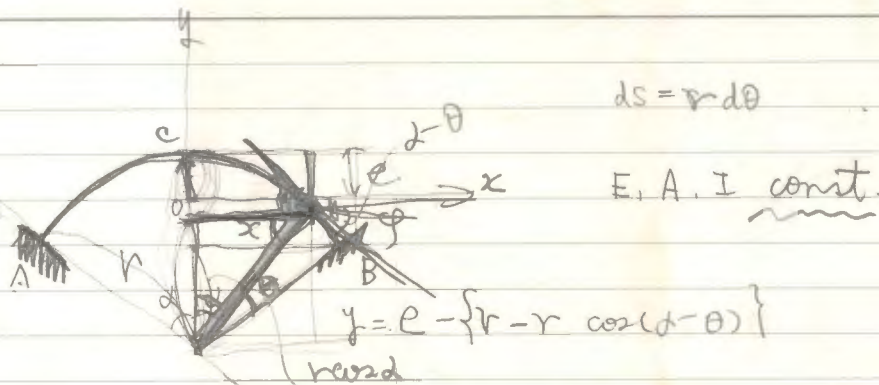 y
ds = r dθ
C
α-θ
e
x
E, A, I const.
O
x
φ
A
r
B
α
θ
y = e - {r - r cos(α-θ)}
r cos α